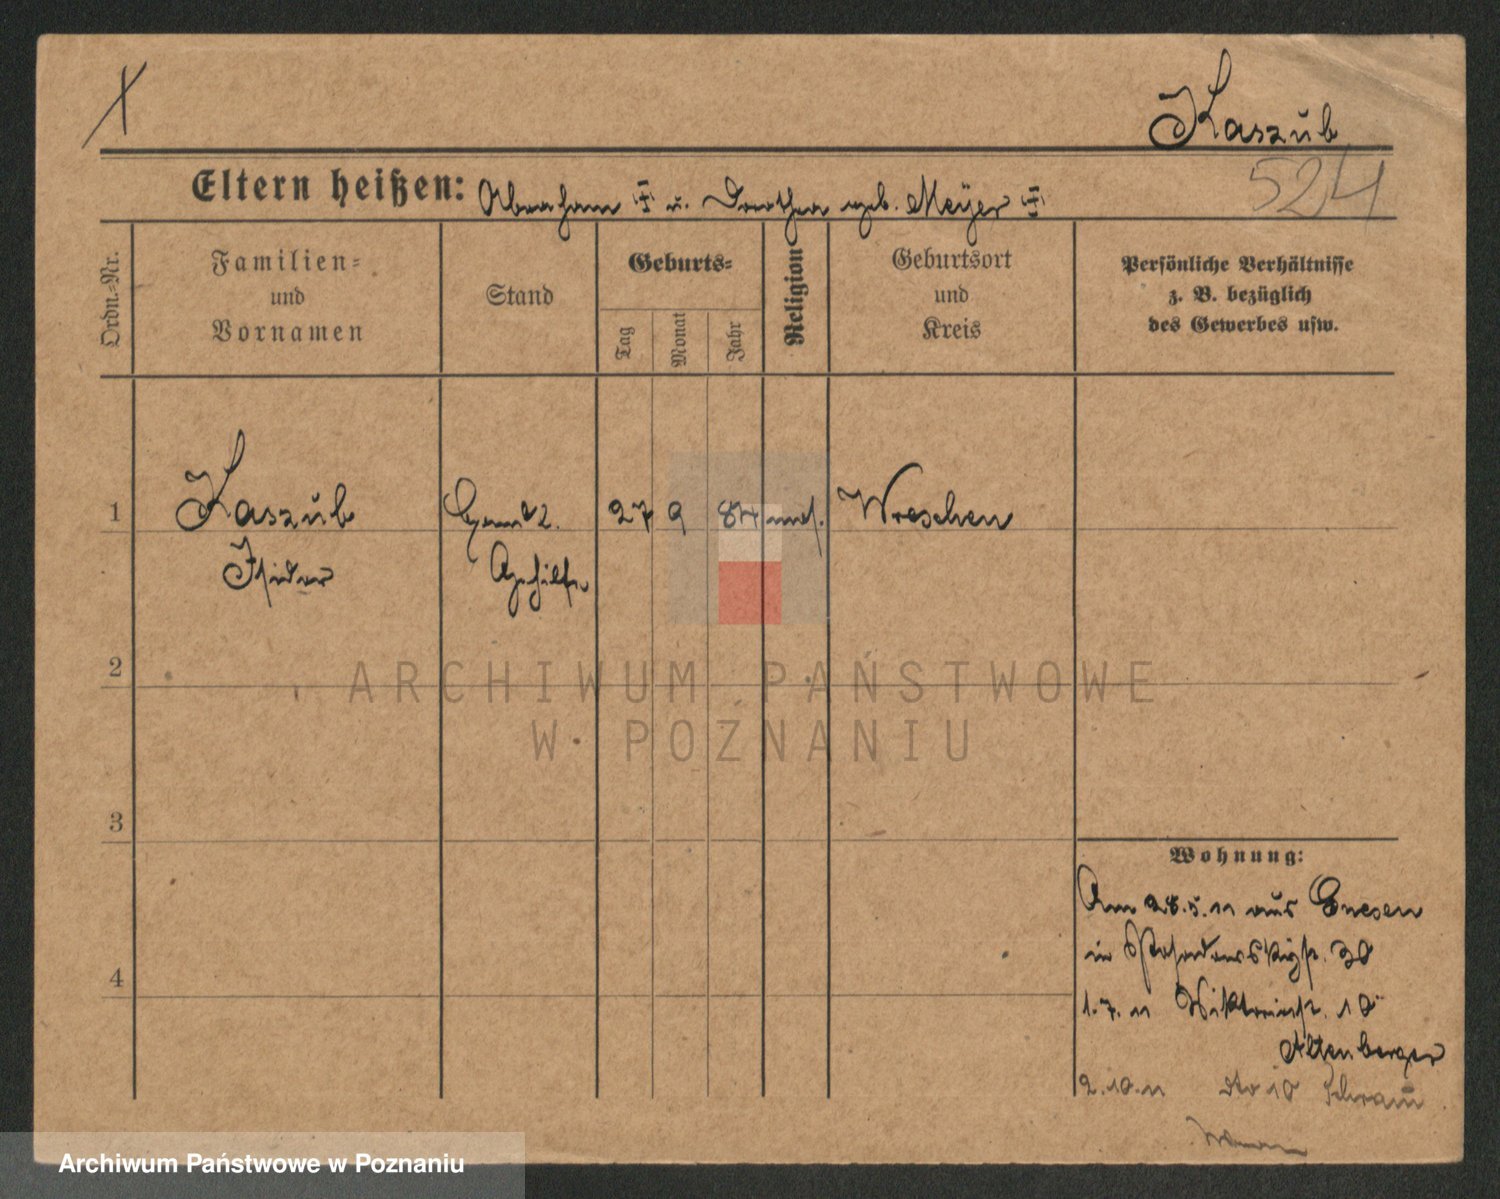 Kaszub
524
Eltern heißen: Abraham u. Dorothea geb. Meyer
Ordn.-Nr.
Familien-
und
Vornamen
Stand
Geburts-
Tag
Monat
Jahr
Religion
Geburtsort
und
Kreis
Persönliche Verhältnisse
z. B. bezüglich
des Gewerbes usw.
1 Kaszub 27 9 84 mos. Wreschen
Isidor Gehilfe
2
3
4
Wohnung:
Am 28.5.11 aus Gnesen
in 30
1.7.11 Viktoriastr. 10
Altenberger
2.10.11 dto 10 Schramm
ARCHIWUM PAŃSTWOWE
W POZNANIU
Archiwum Państwowe w Poznaniu